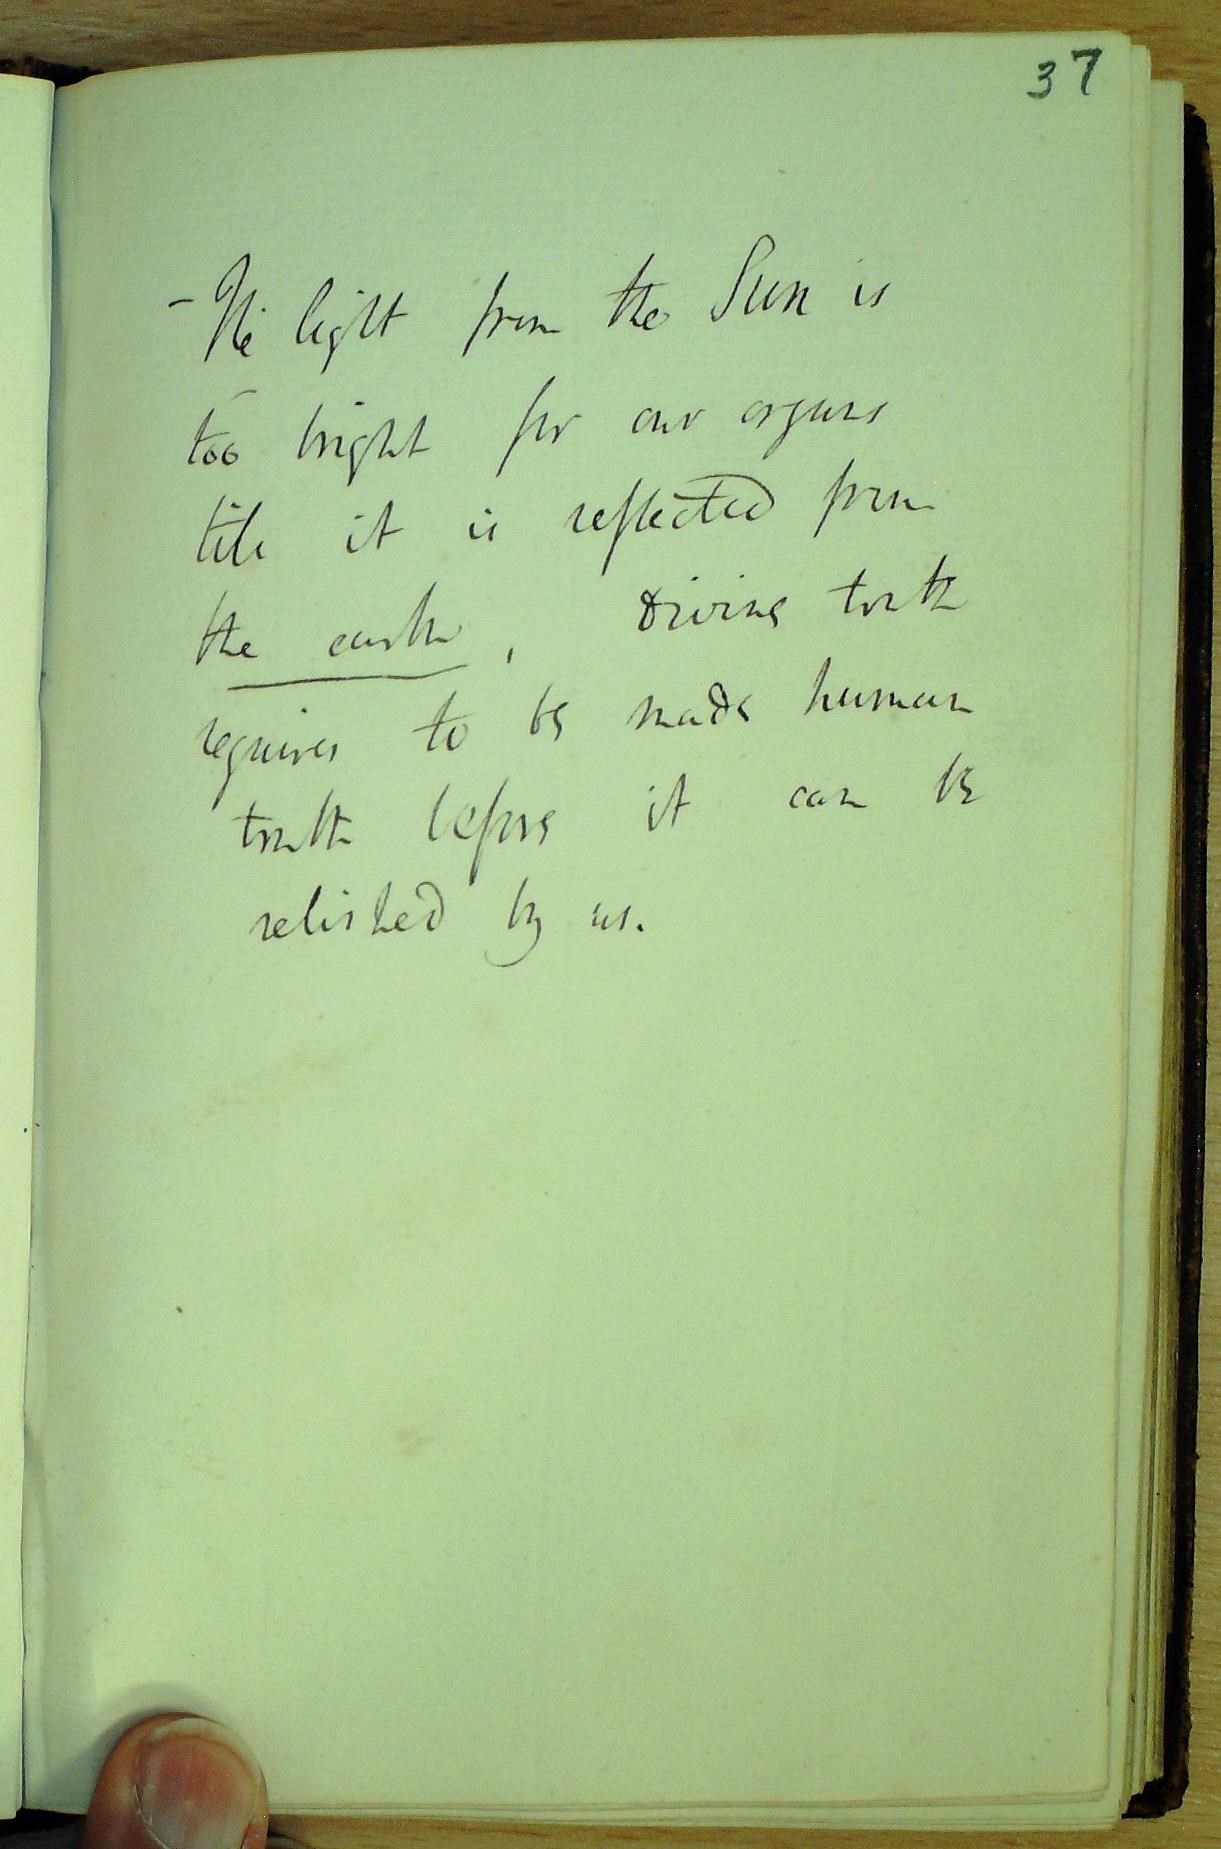 37
- The light from the Sun is
too bright for our organs
till it is reflected from
the earth, divine truth
requires to be made human
truth before it can be
relished by us.